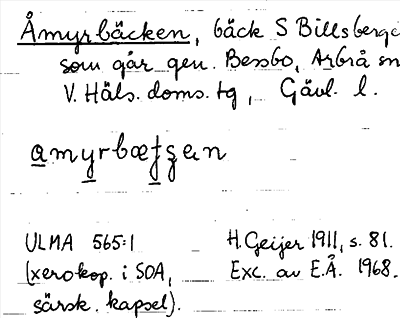 Åmyrbäcken, bäck S Billsberge
som går gen. Bessbo, Arbrå sn
V. Häls. doms. tg, Gävl. l.
amyrbæʈʂen
ULMA 565:1
(xerokop. i SOA,
särsk. kapsel).
H. Geijer 1911, s. 81.
Exc. av E.Å. 1968.